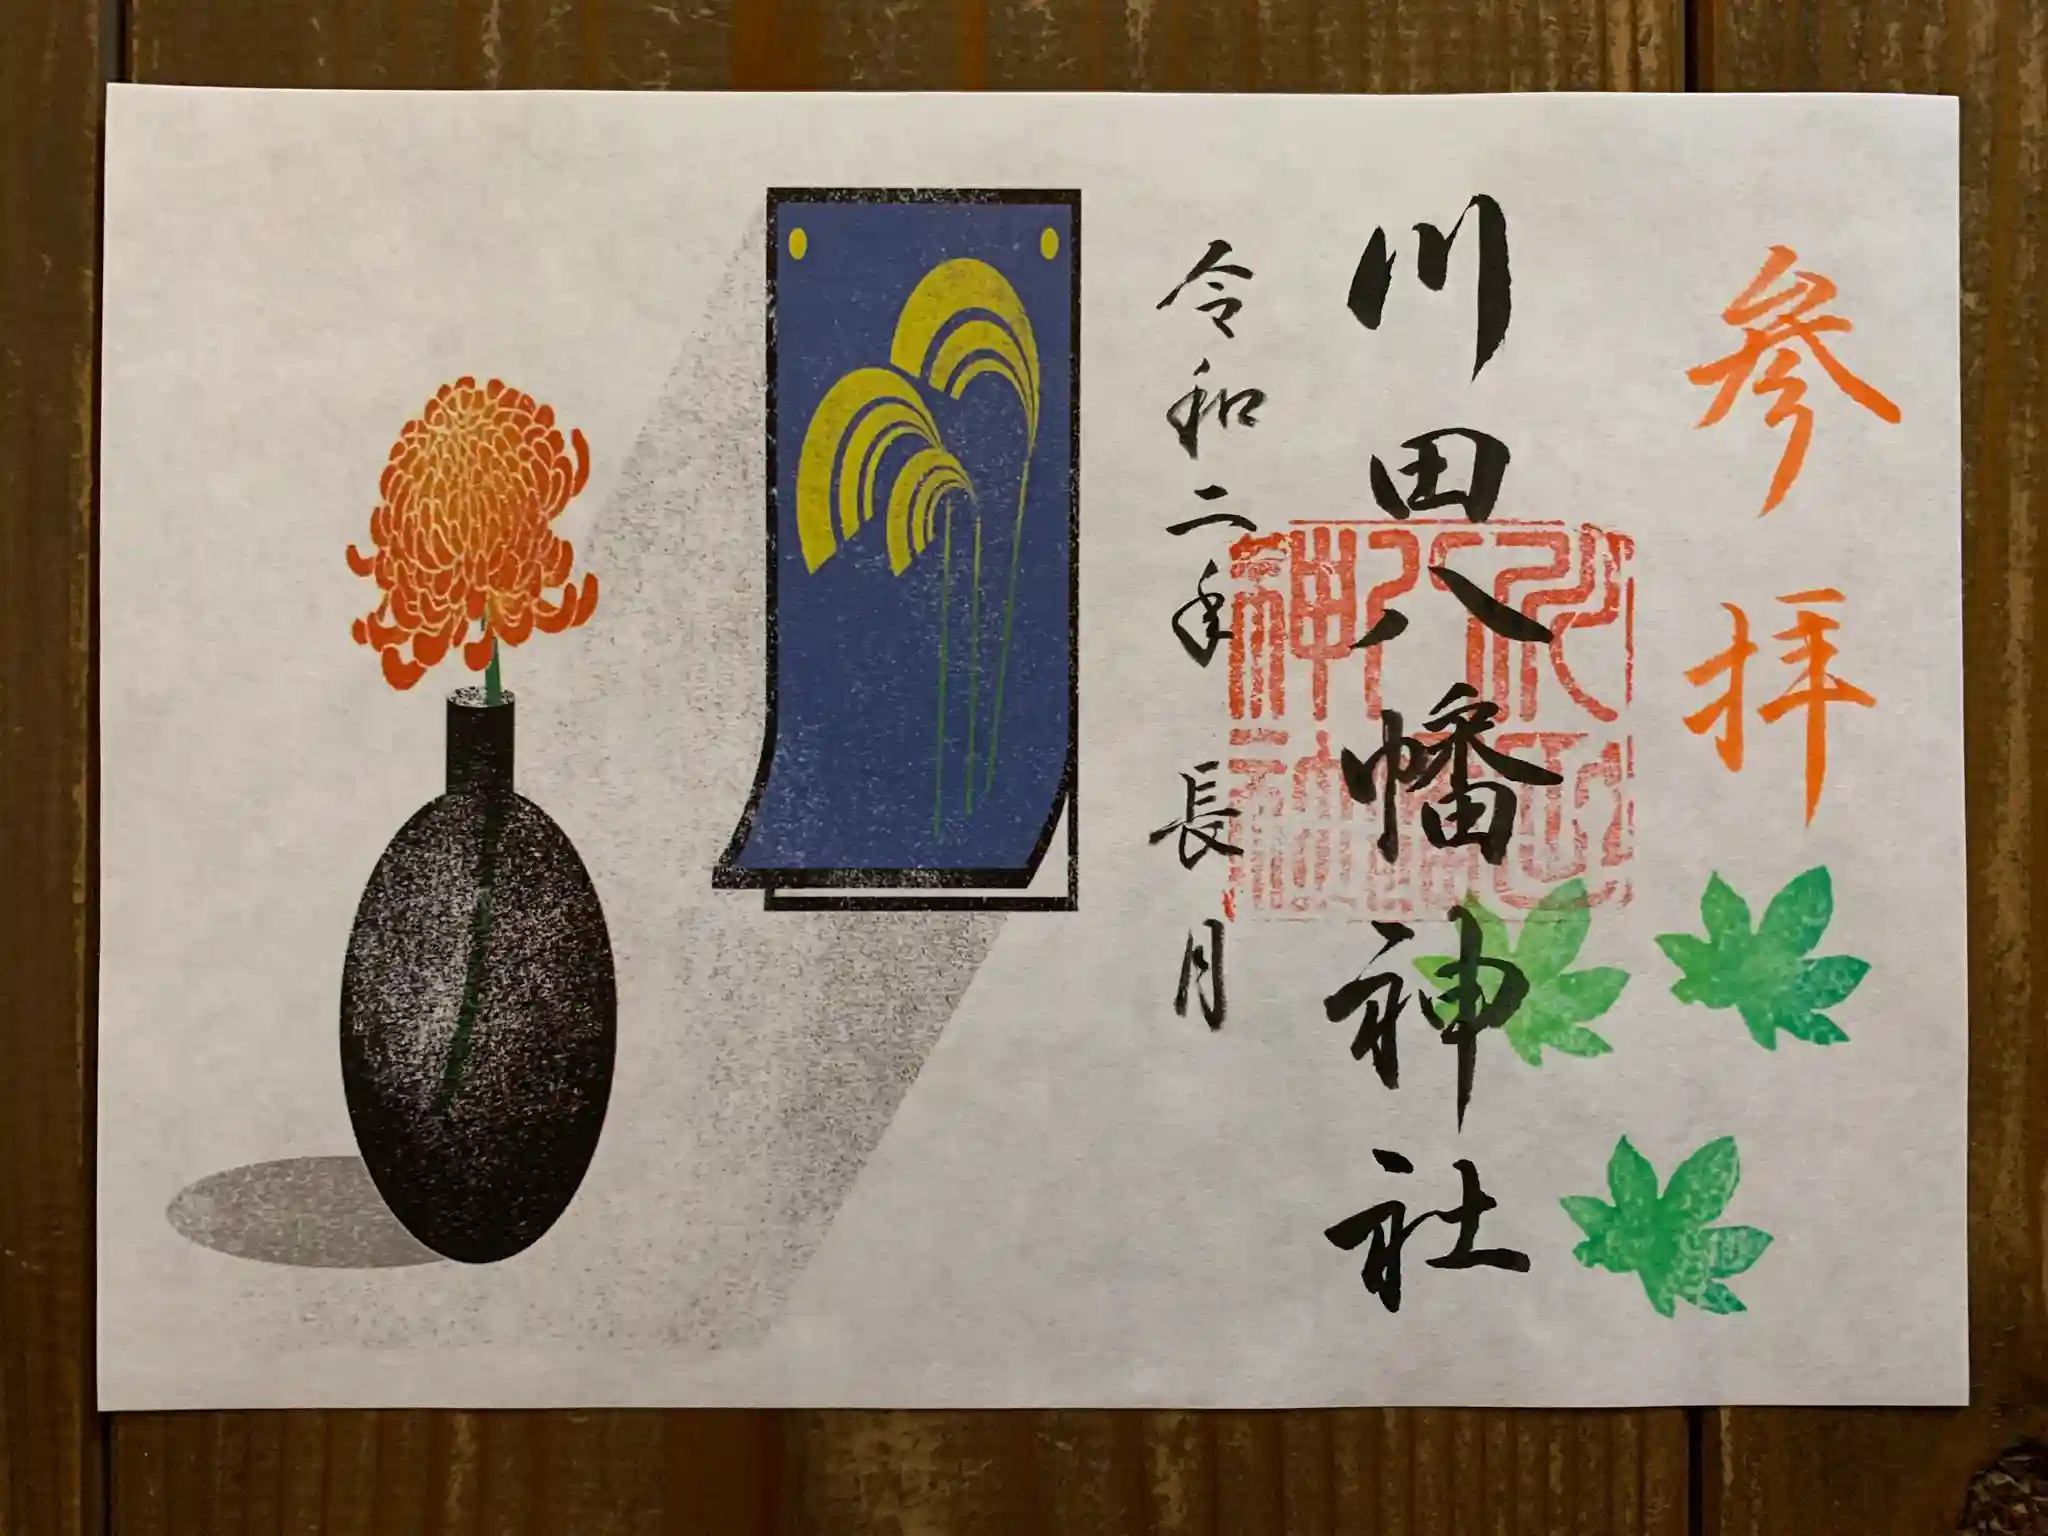 参拝
川田八幡神社
令和二年長月